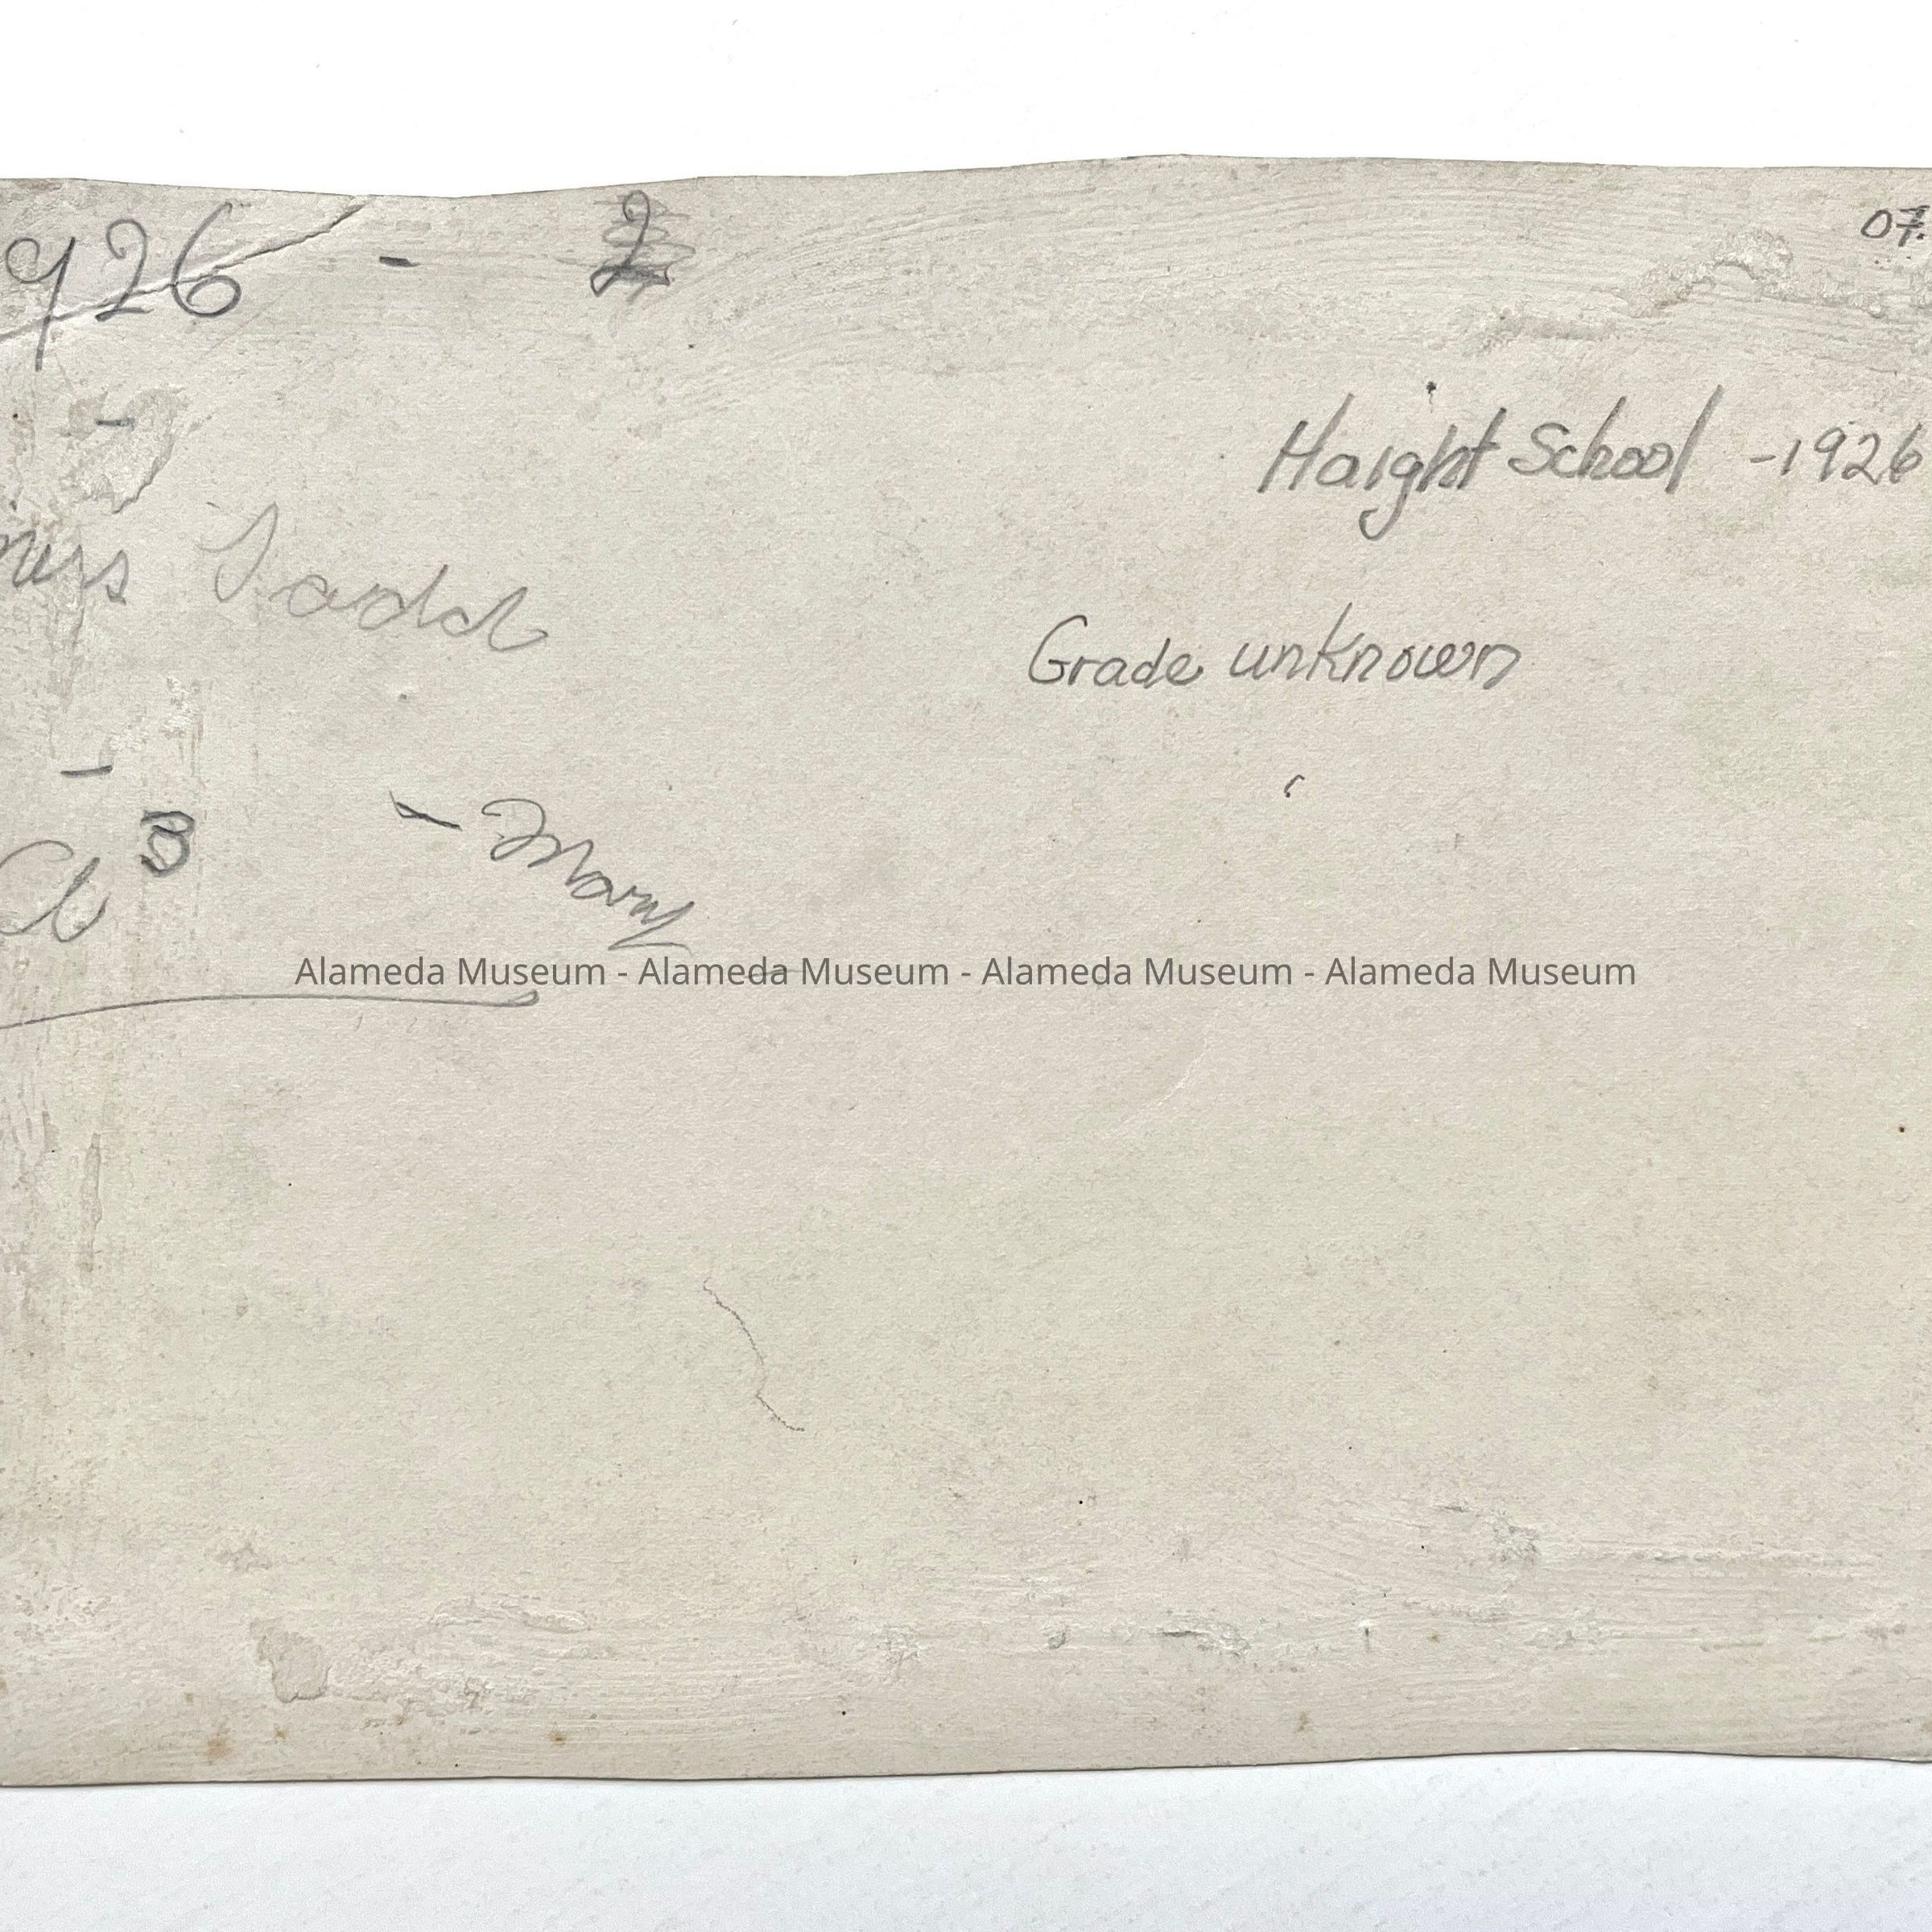 926 - 2
07.
Haight School -1926
miss Ladd
Grade unknown
- Mary
3
Alameda Museum - Alameda Museum - Alameda Museum - Alameda Museum